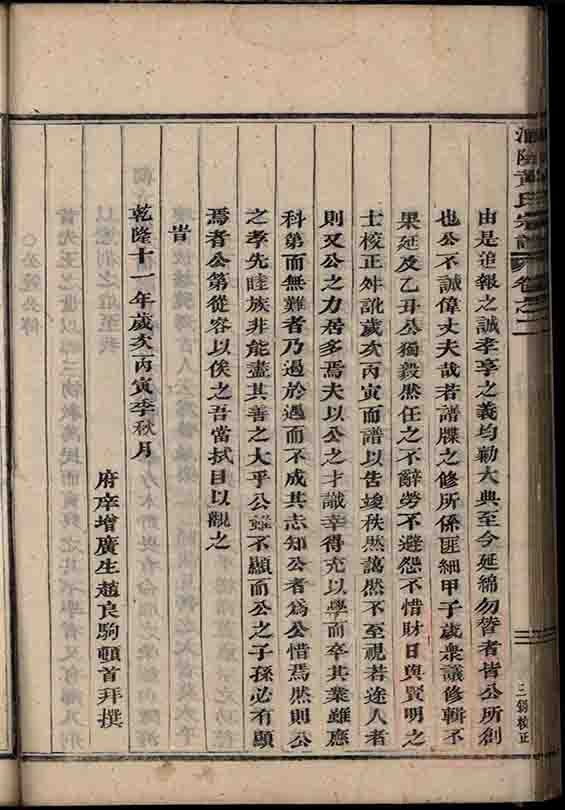 黃氏宗譜 卷之二
三錫校正
由是追報之誠孝享之義均勒大典至今延綿勿替者皆公所創
也公不誠偉丈夫哉若譜牒之修所係匪細甲子歲衆議修輯不
果延及乙丑公獨毅然任之不辭勞不避怨不惜財日與賢明之
士校正舛訛歲次丙寅而譜以告竣秩然藹然不至視若途人者
則又公之力居多焉夫以公之才識幸得充以學而卒其業雖應
科第而無難者乃過於遇而不成其志知公者為公惜焉然則公
之孝先睦族非能盡其善之大乎公雖不顯而公之子孫必有顯
焉者公第從容以俟之吾當拭目以觀之
旹
乾隆十一年歲次丙寅季秋月
府庠增廣生趙良駒頓首拜撰